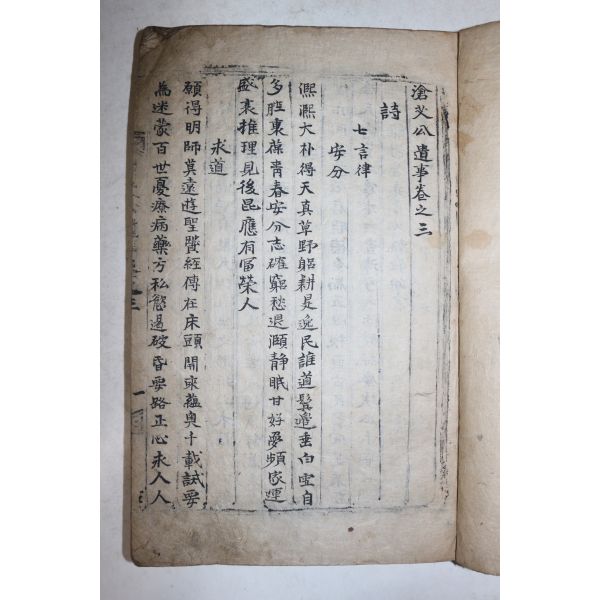 滄艾公遺事卷之三
詩
七言律
安分
熙熙大朴得天真草野躬耕是逸民誰道鬂邊垂白雪自
多腔裏葆靑春安分志確窮愁退灝靜眠甘好夢頻家運
盛衰推理見後昆應有富榮人
求道
願得明師莫遠遊聖賢經傳在床頭開來蘊奧千載試要
為迷蒙百世憂療病藥方私慾過破昏要路正心求人人